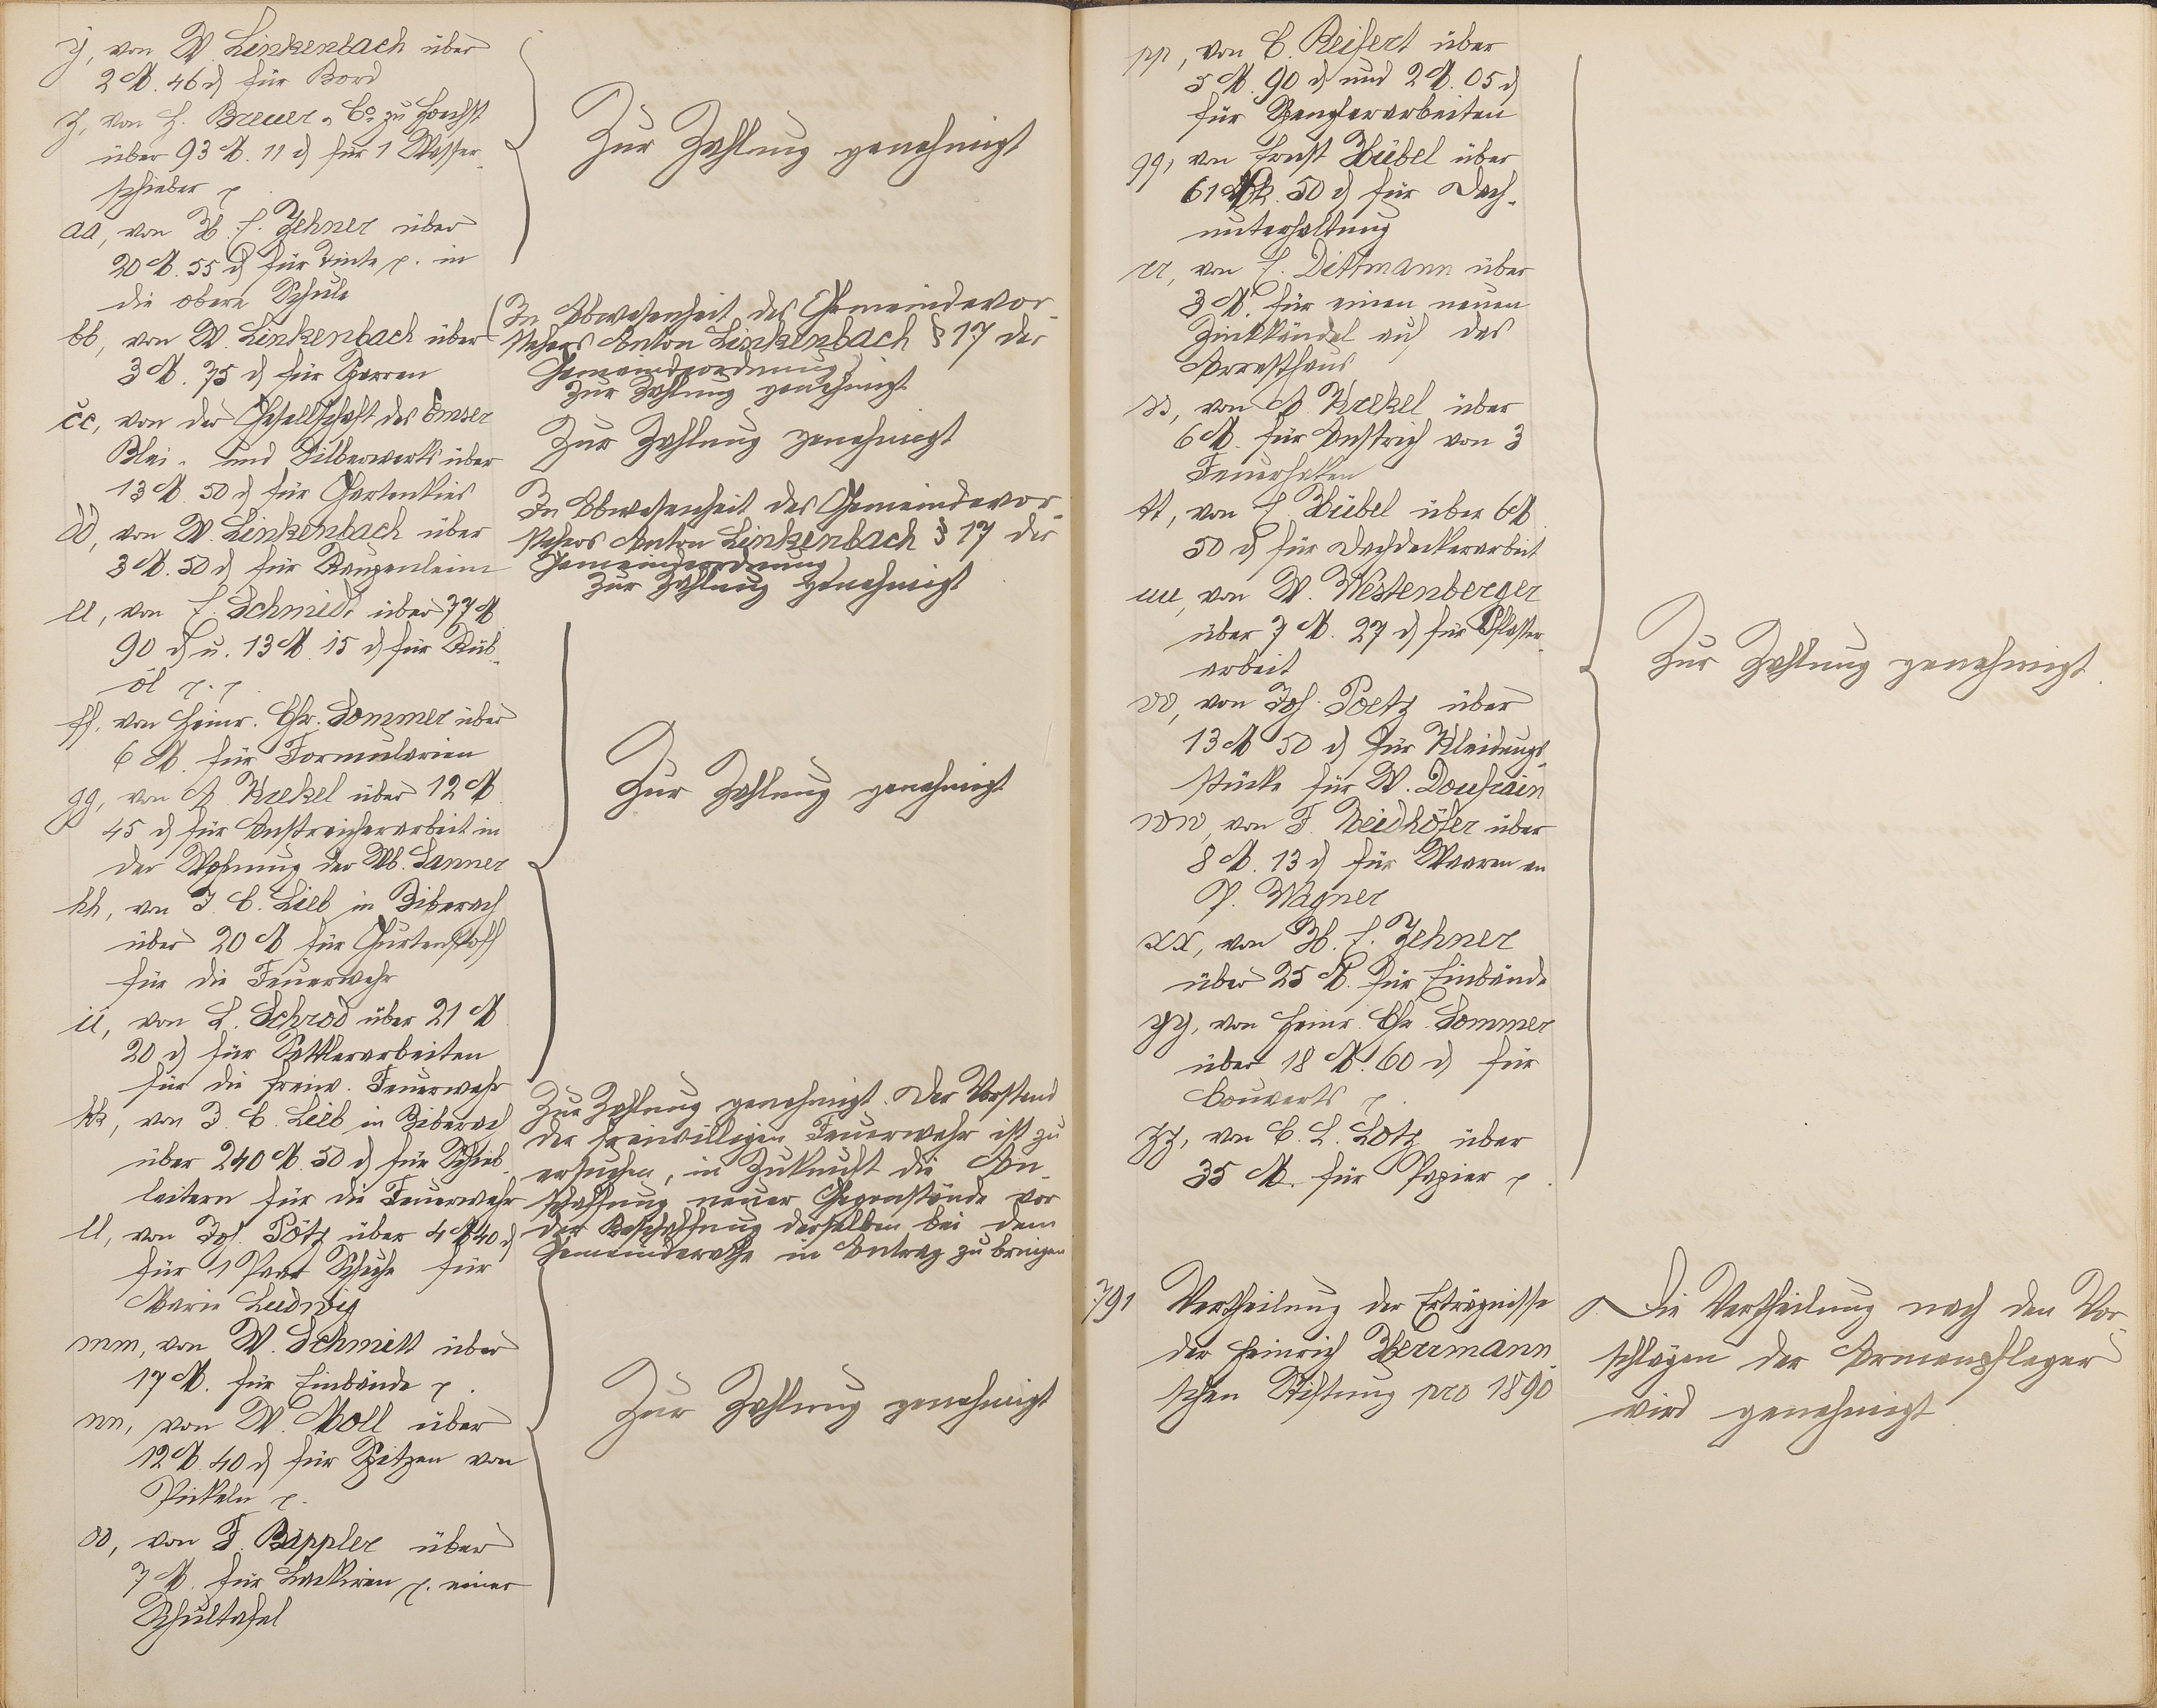 y, von W. Linkenbach über
2 M. 46 d für Bord
z, von H. Breuer u. Co. zu Hoechst
über 93 M. 11 d für 1 Wasser-
schieber p
aa, von H. E. Zehner über
20 M. 55 d für Tinte p. in
die obere Schule
bb, von W. Linkenbach über
3 M. 75 d für
cc, von der Gesellschaft des Emser
Blei- und Silberwerks über
13 M. 50 d für Gartenkies
dd, von W. Linkenbach über
3 M. 50 d für Raupenleim
ee, von E. Schmidt über 77 M
90 d u. 13 M. 15 d für Rüb-
öl p. p
ff, von Heinr. Chr. Sommer über
6 M. für Formularien
gg, von A. Krekel über 12 M.
45 d für Anstreicherarbeit in
der Wohnung der Wb. Sanner
hh, von J. C. Lieb in Biberach
über 20 M für Gurtenstoff
für die Feuerwehr
ii, von L. Schrod über 21 M
20 d für Sattlerarbeiten
für die freiw. Feuerwehr
kk, von J. C. Lieb in Biberach
über 240 M. 50 d für Schieb-
leitern für die Feuerwehr
ll, von Jos. Pötz über 4 M 40 d
für 1 Paar Schuhe für
Marie Ludwig
mm, von W. Schmitt über
17 M. für Einbände p.
nn, von W. Moll über
12 M. 40 d für Spitzen von
Pickeln p.
oo, von F. Bäppler über
7 M. für Lackiren p. einer
Schultafel
Zur Zahlung genehmigt
(In Abwesenheit des Gemeindevor-
stehers Anton Linkenbach § 17 der
Gemeindeordnung)
Zur Zahlung genehmigt
Zur Zahlung genehmigt
In Abwesenheit des Gemeindevor-
stehers Anton Linkenbach § 17 der
Gemeindeordnung
Zur Zahlung genehmigt
Zur Zahlung genehmigt
Zur Zahlung genehmigt. Der Vorstand
der freiwilligen Feuerwehr ist zu
ersuchen, in Zukunft die An-
schaffung neuer Gegenstände vor
der Beschaffung derselben bei dem
Gemeinderathe in Antrag zu bringen
Zur Zahlung genehmigt
pp, von C. Reifert über
5 M. 90 d und 2 M. 05 d
für Spenglerarbeiten
qq, von Ernst Hübel über
61 Mk. 50 d für Dach-
unterhaltung
rr, von E. Dittmann über
3 M. für einen neuen
Zinkkändel auf das
Arresthaus
ss, von A. Krekel über
6 M. für Anstrich von 3
Feuerhaken
tt, von E. Hübel über 6 M
50 d für Dachdeckerarbeit
uu, von W. Westenberger
über 7 M. 27 d für Pflaster-
arbeit
vv, von Jos. Poetz über
13 M 50 d für Kleidungs-
stücke für W. Doufrain
ww, von F. Neidhöfer über
8 M. 13 d für Waaren an
P. Wagner
xx, von H. E. Zehner
über 25 M. für Einbände
yy, von Heinr. Chr. Sommer
über 18 M. 60 d für
Couverts p.
zz, von C. L. Lotz über
35 M. für Papier p.
Zur Zahlung genehmigt.
791 Vertheilung der Erträgnisse
der Heinrich Herrmann-
schen Stiftung pro 1890
Die Vertheilung nach den Vor-
schlägen der Armenpfleger
wird genehmigt